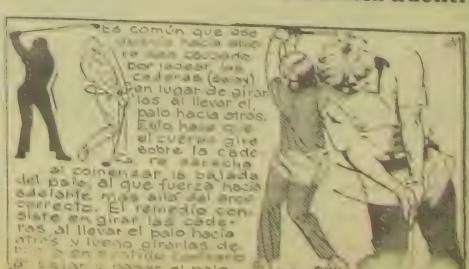 Es común que ese
hacia aden-
tro sea causado
por ladear las
caderas (sway)
en lugar de girar
las al llevar el
palo hacia atrás.
Esto hace que
el cuerpo gire
sobre la cade
ra derecha
al comenzar la bajada
del palo, al que fuerza hacia
adelante más allá del arco
correcto. El remedio con
siste en girar las cade-
ras al llevar el palo hacia
atrás y luego girarlas de
en sentido contrario
al bajar y pegar el palo